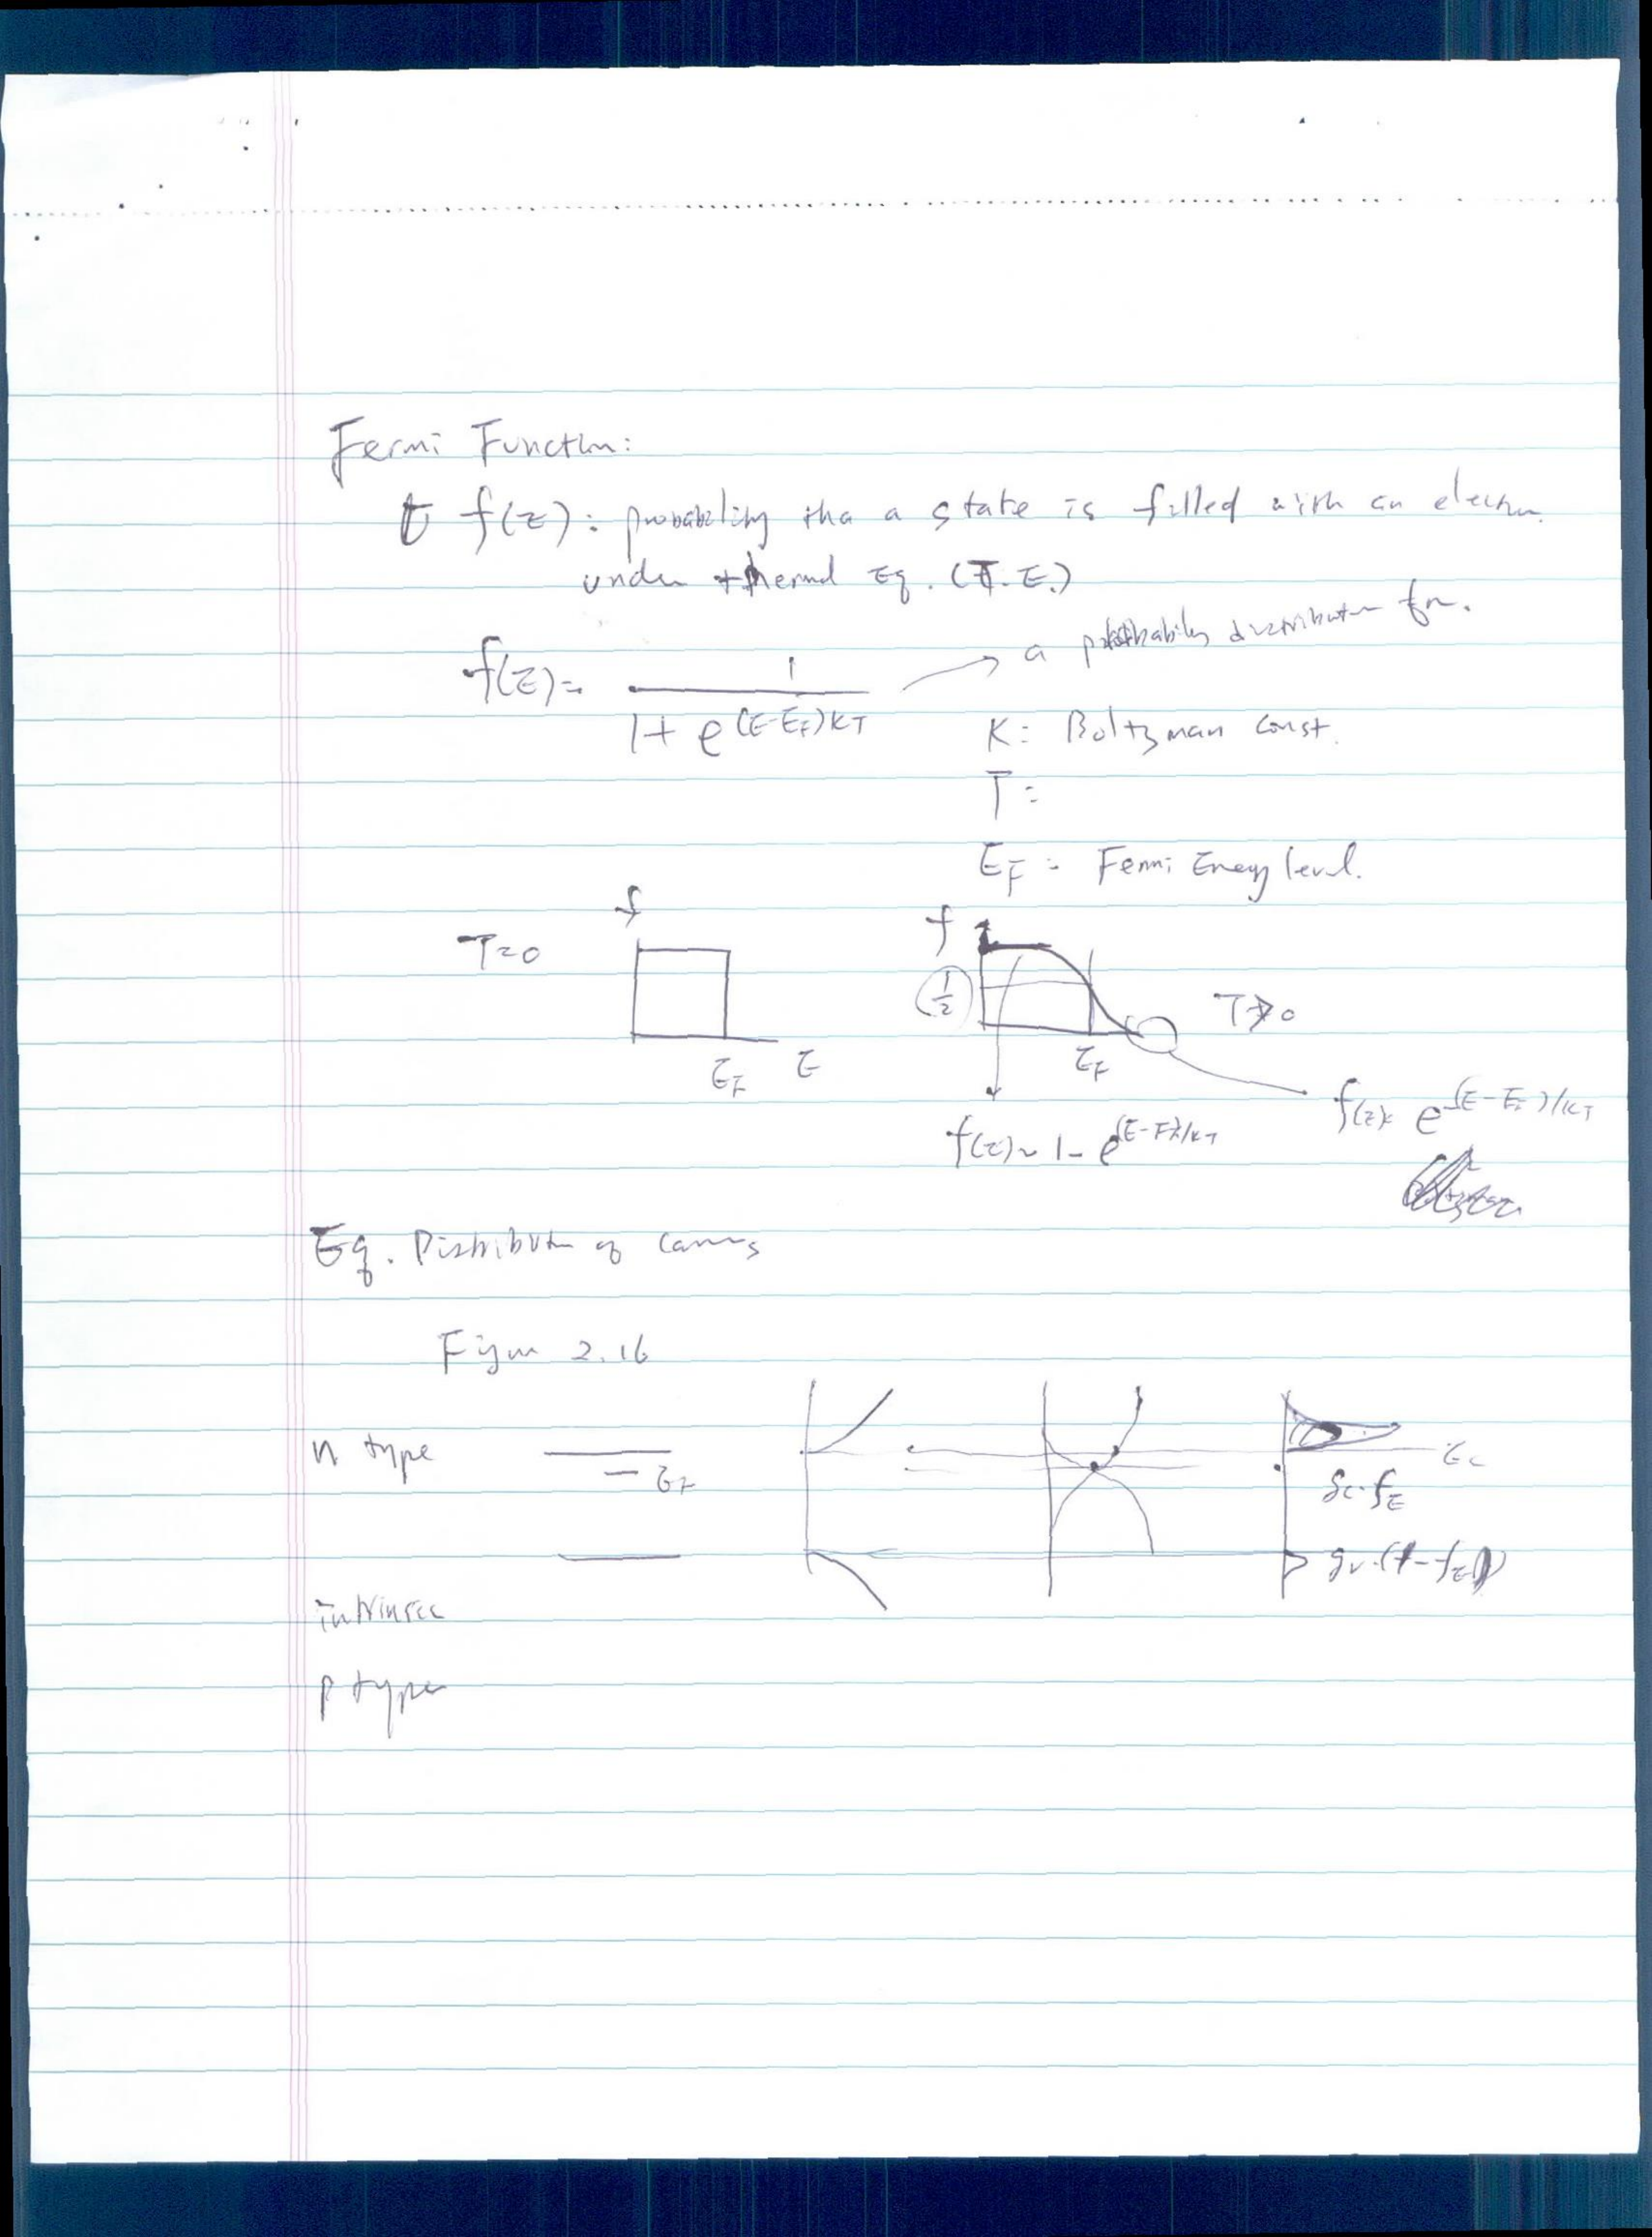 Fermi Function:
f(E): probability tha a state is filled with an electron
under thermal Eq. (T.E.)
f(E) = 1 / 1 + e^(E-E_F)KT → a probability distribution fn.
K: Boltzman const.
T:
E_F = Fermi Energy level.
f
f 1
T=0
1/2
T>0
E_F E
E_F
f(E)≈ e^-(E-E_F)/KT
f(E)≈ 1- e^(E-E_F)/KT
Eq. Distribution of carriers
Figure 2.16
n type
E_F
E_C
g_c·f_E
g_v·(1-f_E)
intrinsic
p type